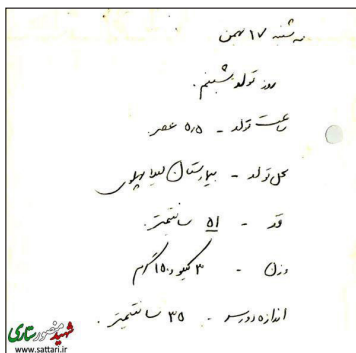 سه شنبه ۱۷ بهمن
روز تولد شبنم.
ساعت تولد - ۵٫۵ عصر
محل تولد - بیمارستان لیلا پهلوی
قد - ۵۱ سانتیمتر.
وزن - ۳ کیلو و ۱۵۰ گرم
اندازه دور سر - ۳۵ سانتیمتر.
شهید منصور ستاری
www.sattari.ir